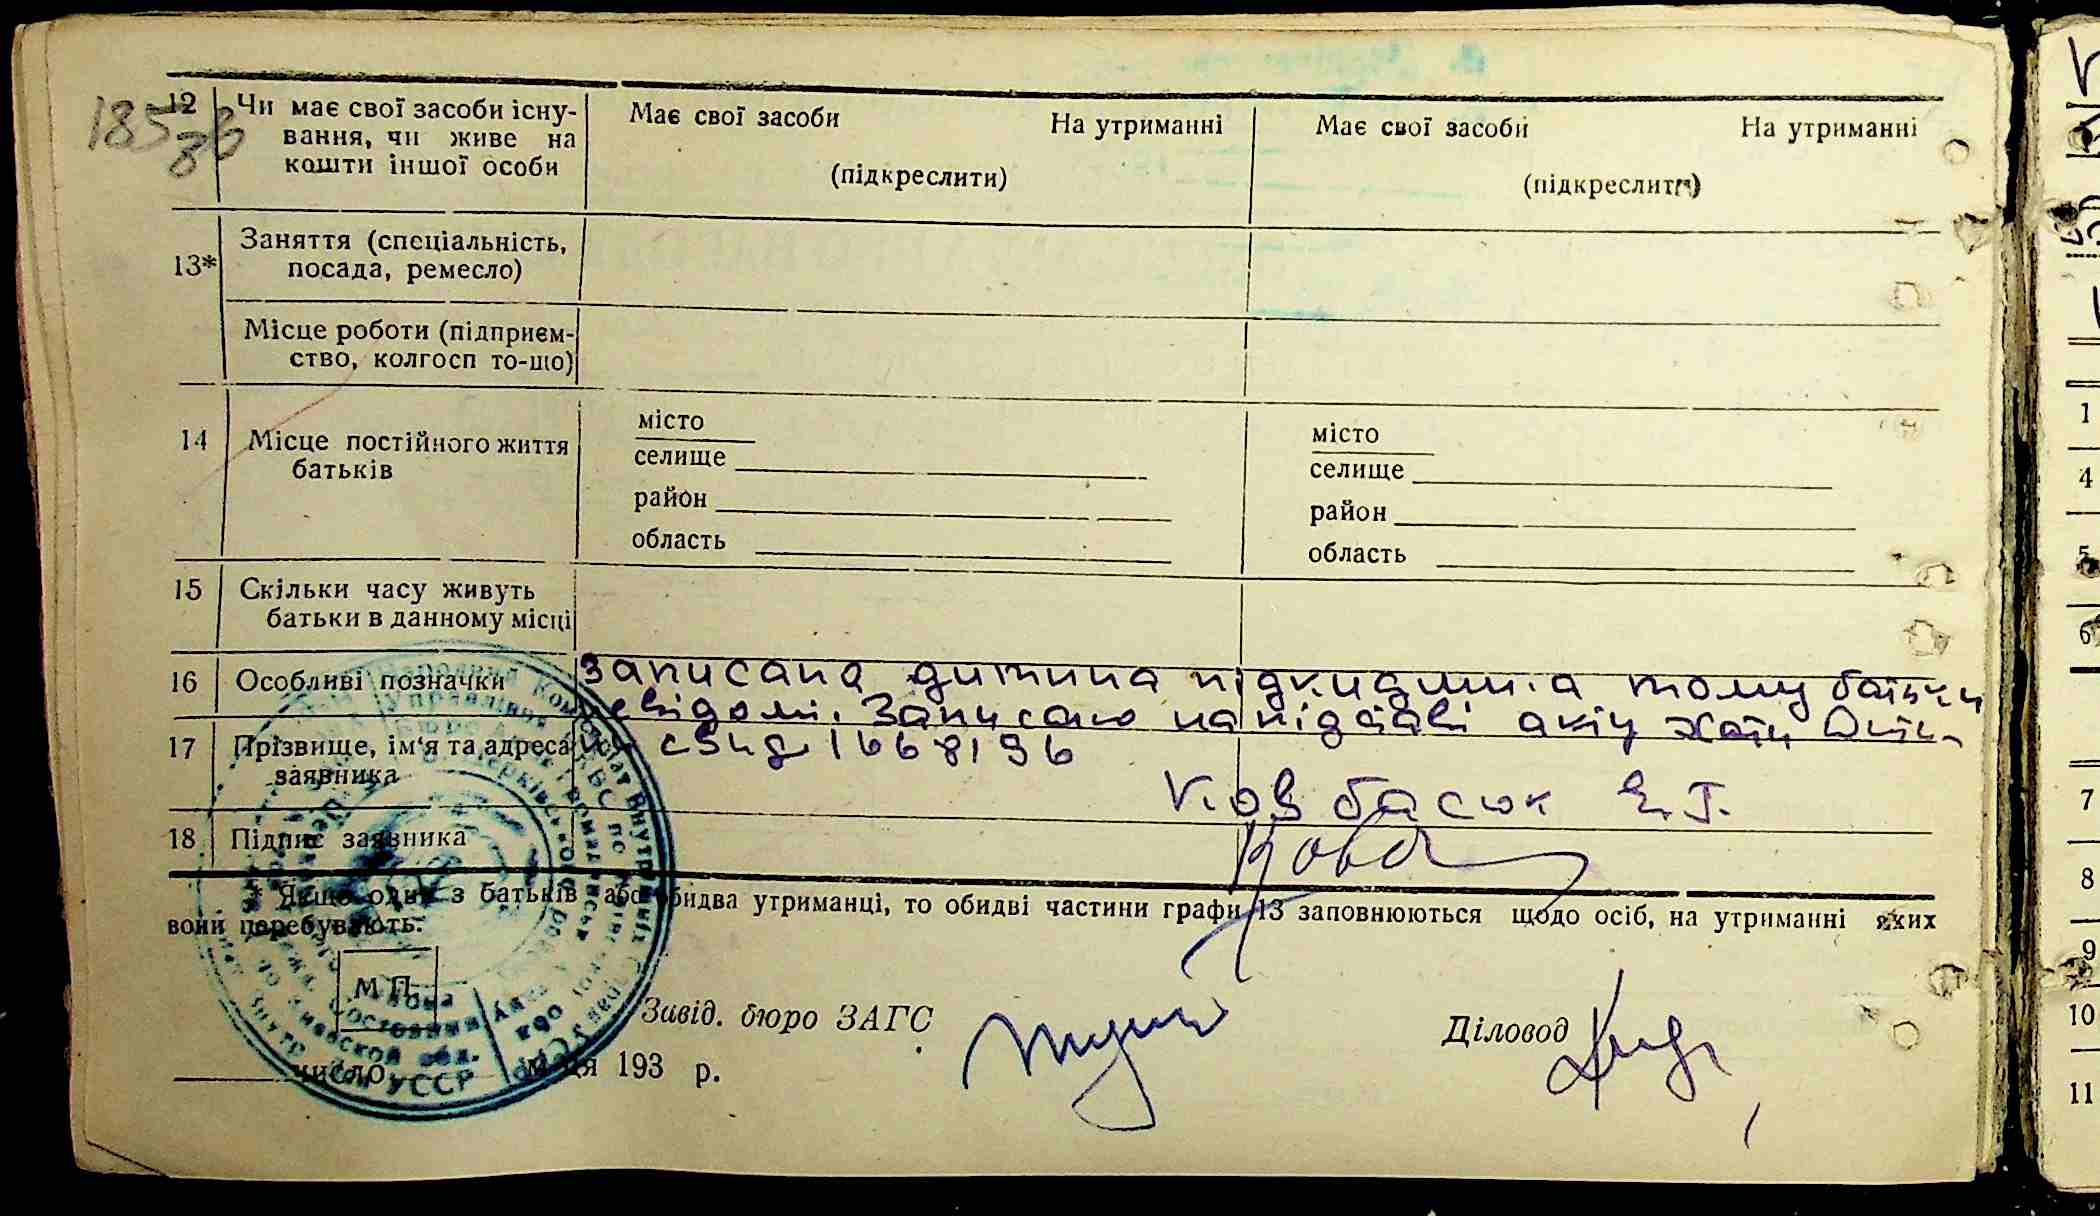 185
86
12 Чи має свої засоби існу-
вання, чи живе на
кошти іншої особи
Має свої засоби На утриманні
(підкреслити)
Має свої засоби На утриманні
(підкреслити)
13* Заняття (спеціальність,
посада, ремесло)
Місце роботи (підприєм-
ство, колгосп то-що)
14 Місце постійного життя
батьків
місто
селище
район
область
місто
селище
район
область
15 Скільки часу живуть
батьки в данному місці
16 Особливі позначки
записана дитина підкидмиа тому батьки
евідомі. Записано на підставі акту хати Дити
17 Прізвище, ім'я та адреса
заявника
1668196
Ковбасюк Е. Г.
18 Підпис заявника
* Якщо один з батьків або обидва утриманці, то обидві частини графи 13 заповнюються щодо осіб, на утриманні яких
вони перебувають.
М П
Завід. бюро ЗАГС
Діловод
число м-ця 193 р.
Народний Комісаріат Внутрішніх Справ УСРР
УССР
1
4
5
6
7
8
9
10
11